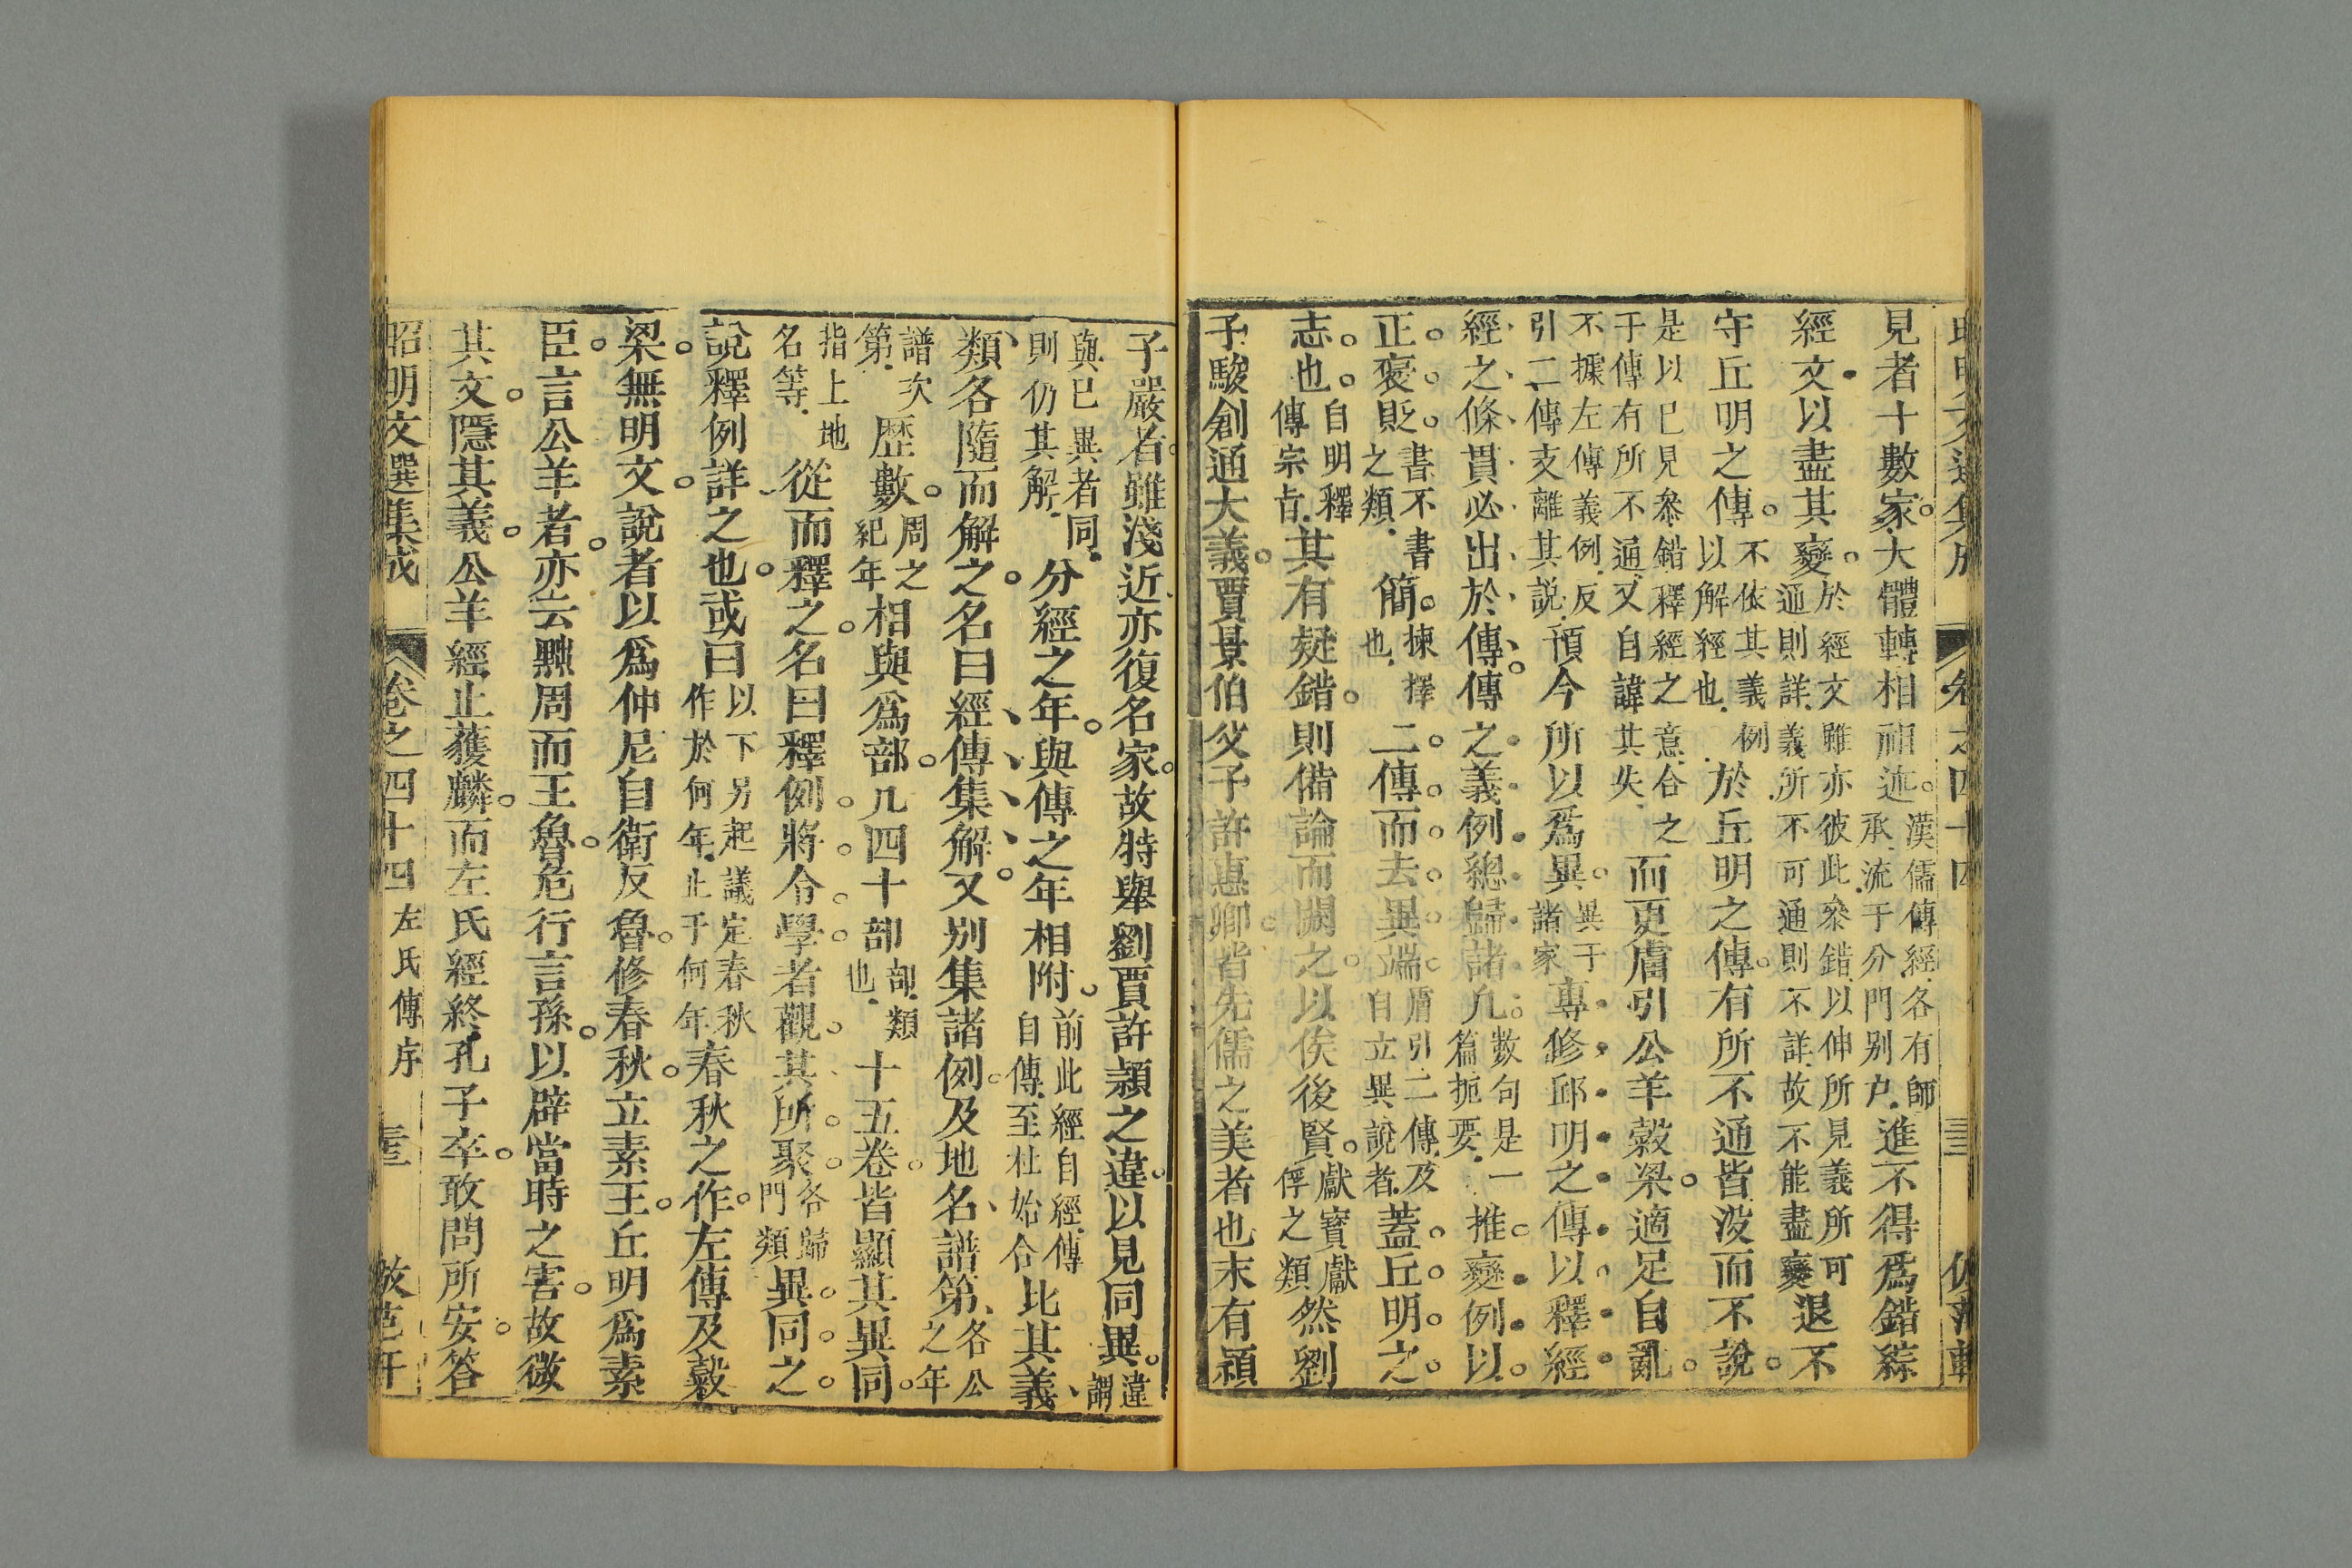 見者十數家大體轉相祖述漢儒傳經各有師承流于分門别户進不得爲錯綜
經文以盡其變於經文雖亦彼此叅錯以伸所見義所可通則詳義所不可通則不詳故不能盡變退不
守丘明之傳不依其義例以解經也於丘明之傳有所不通皆沒而不說
是以巳見叅錯釋經之意合之于傳有所不通又自諱其失而更膚引公羊穀梁適足自亂
不據左傳義例反引二傳支離其說預今所以爲異異于諸家專修邱明之傳以釋經
經之條貫必出於傳傳之義例總歸諸凡數句是一篇扼要推變例以
正褒貶書不書之類簡揀擇也二傳而去異端膚引二傳及自立異說者蓋丘明之
志也自明釋傳宗旨其有疑錯則備論而闕之以俟後賢獻寳獻俘之類然劉
子駿創通大義賈景伯父子許惠卿皆先儒之美者也末有潁
子嚴者雖淺近亦復名家故特舉劉賈許潁之違以見同異違謂
與巳異者同則仍其解分經之年與傳之年相附前此經自經傳自傳至杜始合比其義
類各隨而解之名曰經傳集解又别集諸例及地名譜第各公之年
譜次第歷數周之紀年相與爲部凡四十部部類也十五卷皆顯其異同
指上地名等從而釋之名曰釋例將令學者觀其所聚各歸門類異同之
說釋例詳之也或曰以下另起議定春秋作於何年止于何年春秋之作左傳及穀
梁無明文說者以爲仲尼自衛反魯修春秋立素王丘明爲素
臣言公羊者亦云黜周而王魯危行言孫以辟當時之害故微
其文隱其義公羊經止獲麟而左氏經終孔子卒敢問所安答
昭明文選集成 卷之四十四 左氏傳序